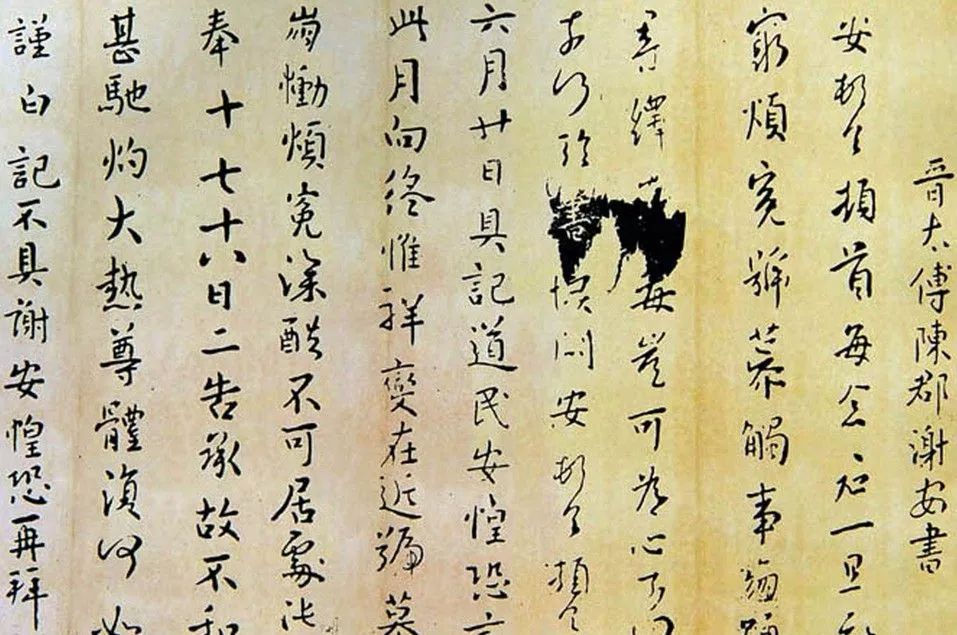 晉太傅陳郡謝安書
安頓首頓首每念君一旦
窮煩冤號慕觸事
尋繹 毒豈可為心
奈何臨書 悶安頓首頓首
六月廿日具記道民安惶恐言
此月向終惟祥變在近號慕
崩慟煩冤深酷不可居處比
奉十七十八日二告承故不和
甚馳灼大熱尊體復何如
謹白記不具謝安惶恐再拜